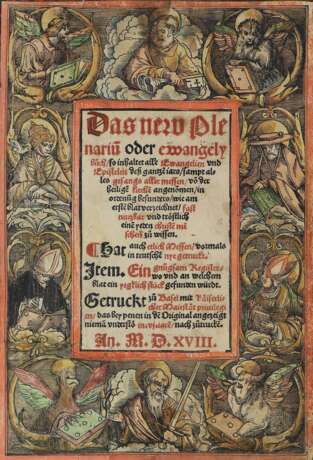 Das new Ple
nariū oder ewangely
bůch / so inhaltet alle Ewangelien vnd
Epistelen deß gantzē iars / sampt al
les gesangs aller messen / vō der
heilige kirchē angenōmen / in
ordenūg besunders / wie am
erstē blat verzeichnet / fast
nutzbar vnd tröstlich
einē yeden christē mē
schen zů wissen.
Hat auch etlich Messen / vormals
in teutsch nye getruckt.
Item. Ein gnůgsam Register /
wo vnd an welchem
blat ein yegklich stuck gefunden würdt.
Getruckt zů Basel mit Keiserli
cher Maiestat priuilegi
en / das bey penen in dē Original angezeigt
niemā vnderstō in. vi. iarē / nach zütruckē.
An. M. D. XVIII.